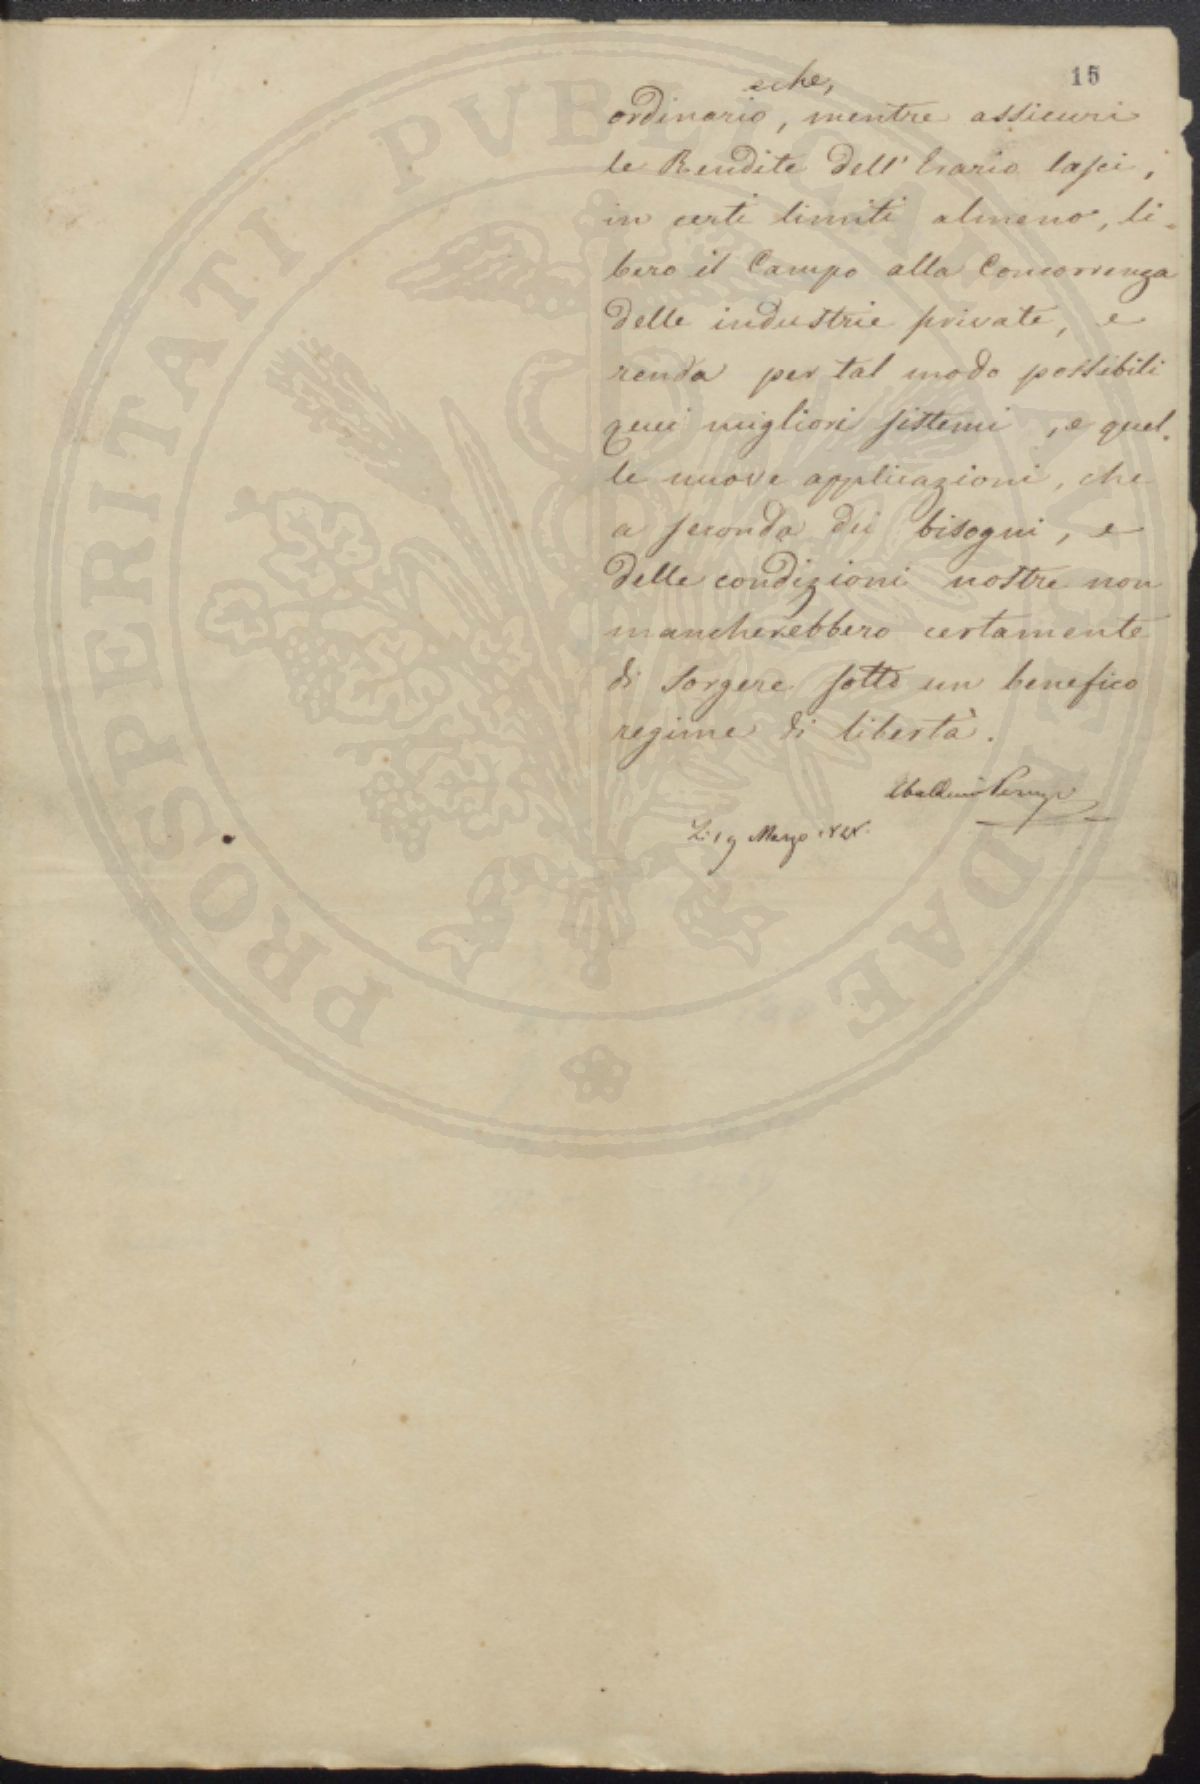 15
e che,
ordinario, mentre assicuri
le Rendite dell' Erario lasci,
in certi limiti almeno, li-
bero il Campo alla Concorrenza
delle industrie private, e
renda per tal modo possibili
quei migliori sistemi, e quel-
le nuove applicazioni, che
a seconda dei bisogni, e
delle condizioni nostre non
mancherebbero certamente
di sorgere sotto un benefico
regime di libertà.
Ubaldino Peruzzi
Li 19 Marzo
PROSPERITATI PVBLICAE AVGENDAE